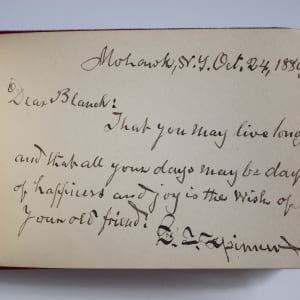 Mohawk, N.Y. Oct. 24, 188
Dear Blanch:
That you may live long
and that all your days may be day
of happiness and joy is the wish of
your old friend: